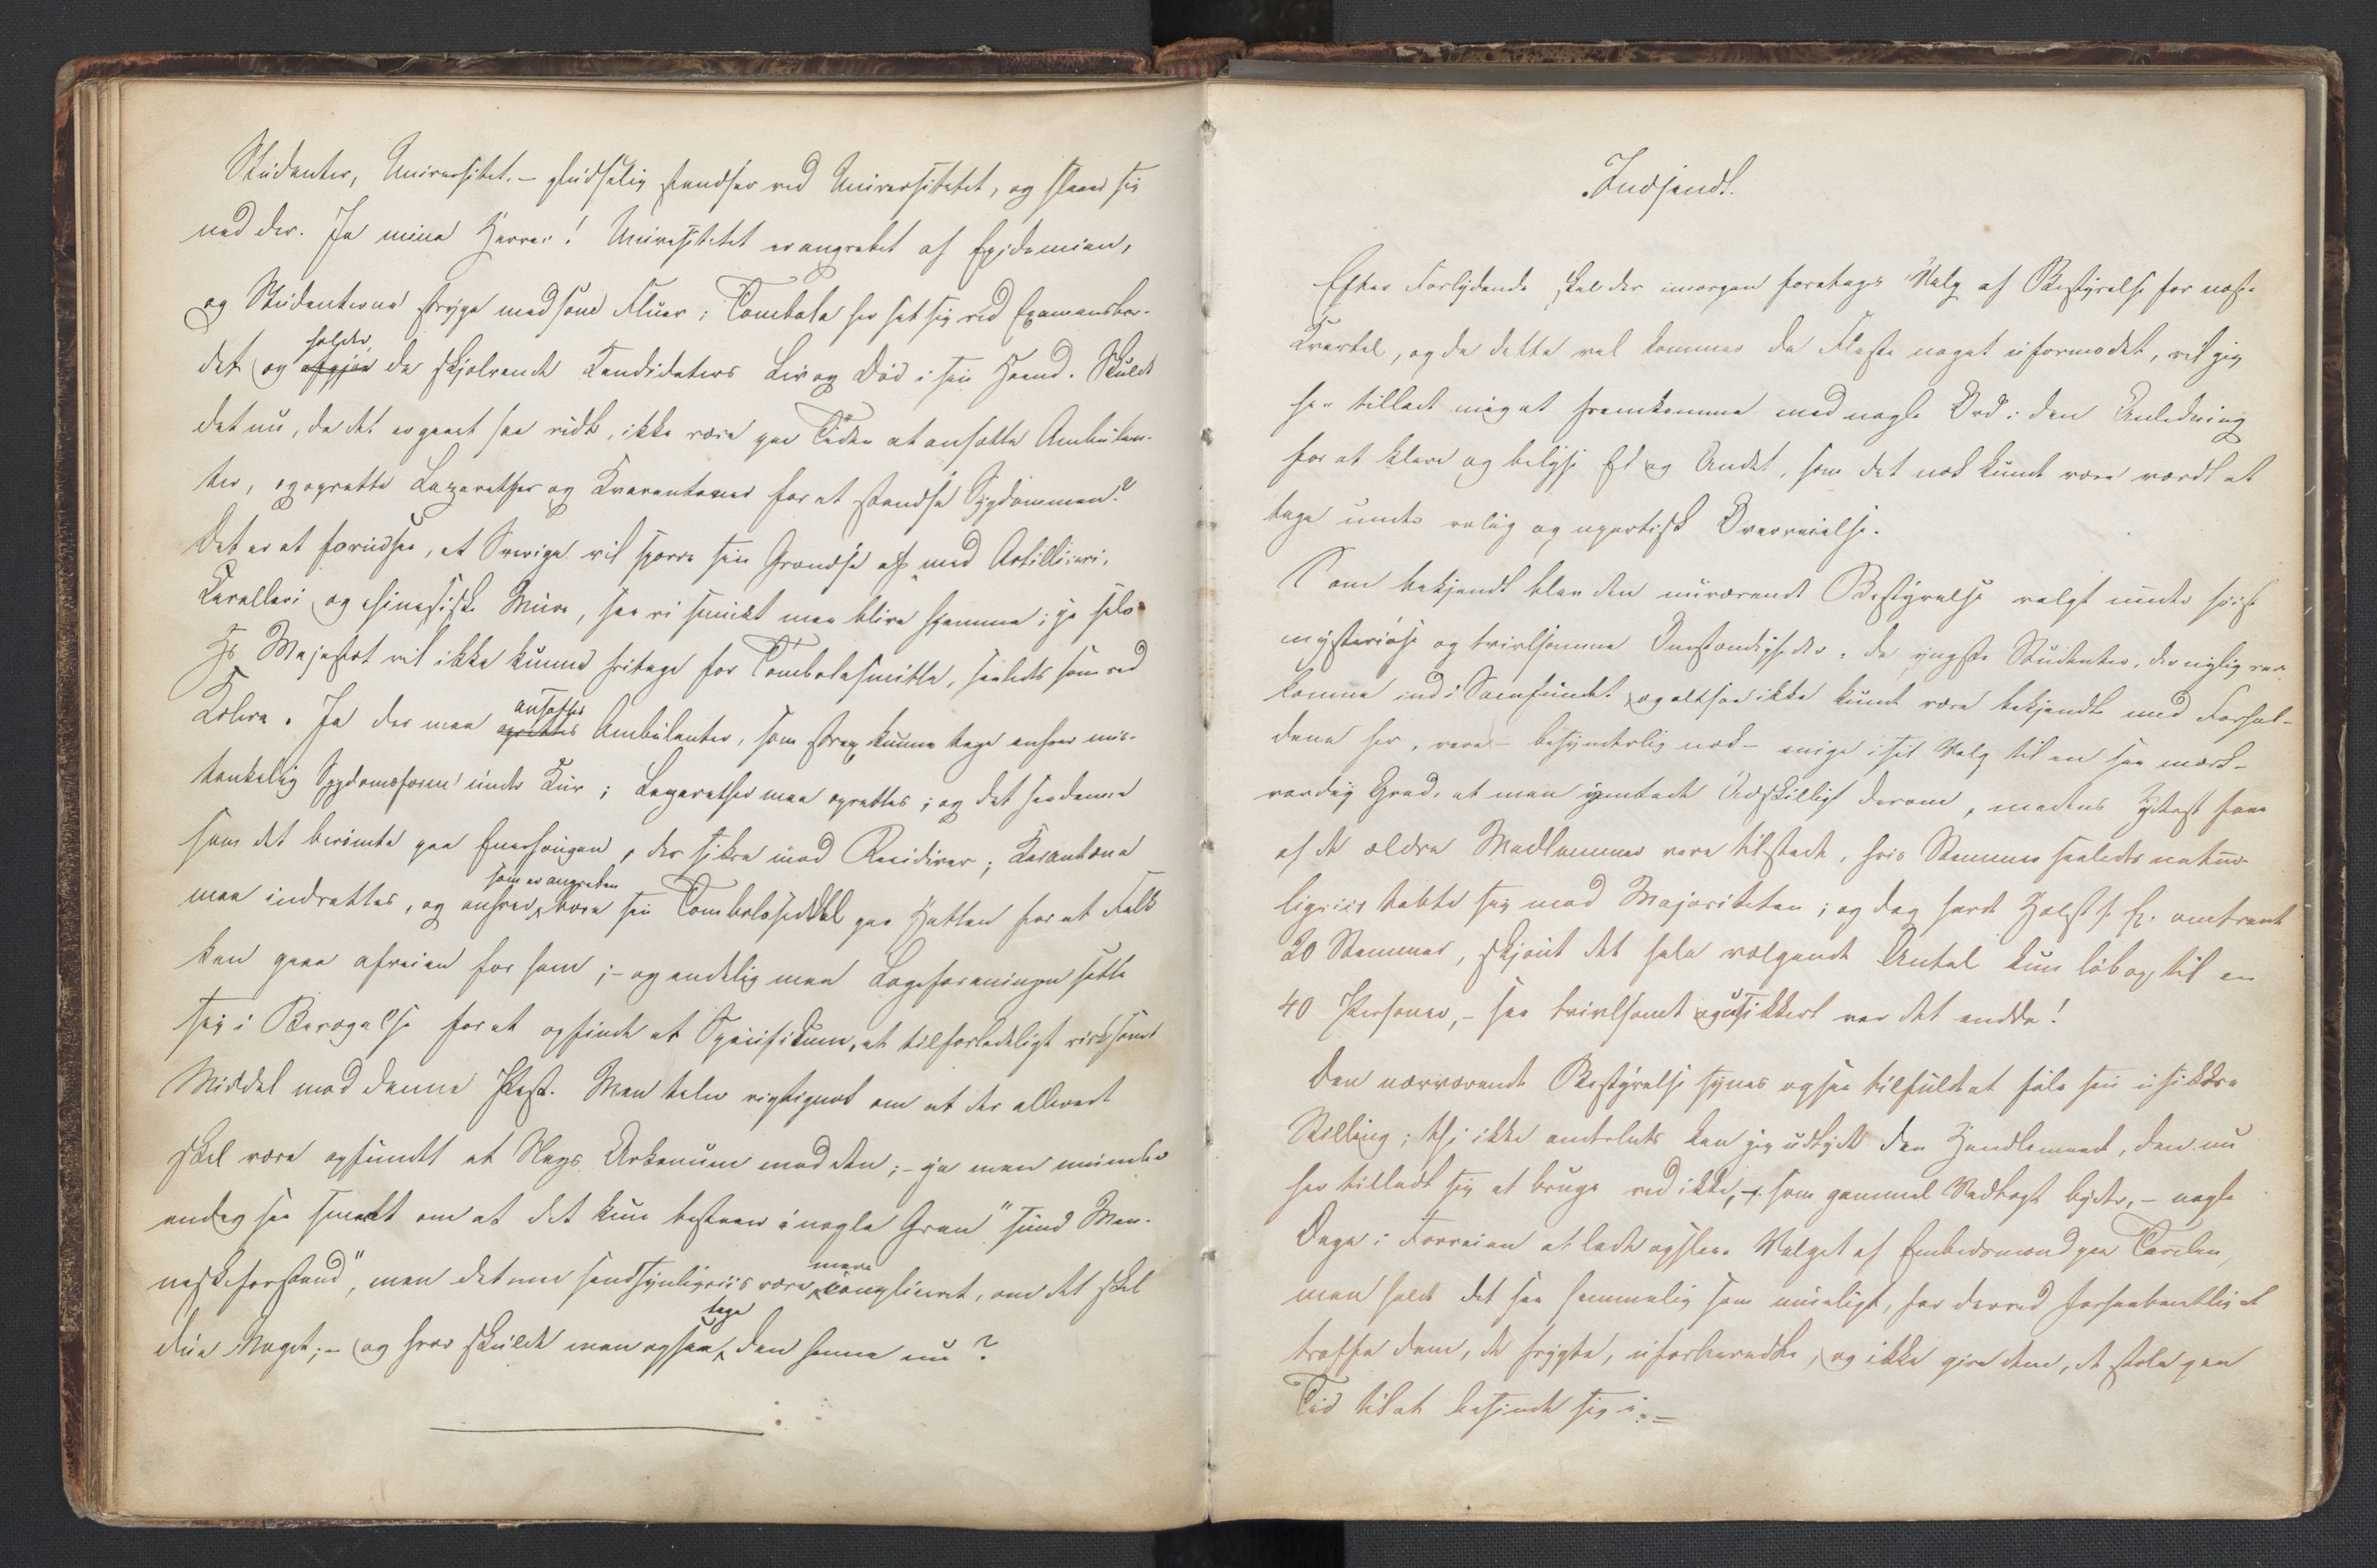 Studenter, Universitet. – pludselig standser ved Universitetet, og slaaer sig
ned der. Ja mine Herrer! Universitetet er angrebet af Epidemien,
og Studenterne stryge med som Fluer; Tombola har sat sig ved Examensbor-
det og holder de skjælvende Kandidaters Liv og Død i sin Haand. Skulde
det nu, da det er gaaet saa vidt, ikke være paa Tiden at ansætte Ambulan-
ter, og oprette Lazarether og Karantæner for at standse Sygdommen?
Det er at forudsee, at Sverige vil spærre sin Grændse af med Artilleri,
Kavalleri og chinesiske Mure, saa vi smukt maa blive hjemme; ja selv
Hs Majestæt vil ikke kunne fritage for Tombolasmitte, saaledes som ved
Kolera. Ja der maa ansættes Ambulanter, som strax kunne tage enhver mis-
tænkelig Sygdomsform under Kur; Lazarether maa oprettes; og det saadanne
som det berømte paa Enerhougen, der sikre mod Recidiver; Karantæne
maa indrettes, og enhver, som er angreben bære sin Tomboloseddel paa Hatten for at Folk
kan gaae afveien for ham; – og endelig maa Lægeforeningen sætte
sig i Bevægelse for at opfinde et Specifikum, et tilforladeligt virksomt
Middel mod denne Pest. Man taler rigtignok om at der allerede
skal være opfundet et Slags Arkanum mod den; – ja man mumler
endog saa smaat om at det kun bestaaer i nogle Gran "sund Men-
neskeforstand", men det maa sandsynligviis være mere compliceret, om det skal
due Noget; – og hvor skulde man ogsaa tage den henne nu?

Indsendt.
Efter Forlydende skal der imorgen foretages Valg af Bestyrelse for næste
Kvartal, og da dette vel kommer de Fleste noget uformodet, vil jeg
have tilladt mig at fremkomme med nogle Ord i den Anledning
for at klare og belyse Et og Andet, som det nok kunde være værdt at
tage under rolig og upartisk Overveielse.
Som bekjendt blev den nuværende Bestyrelse valgt under høist
mysteriøse og tvivlsomme Omstændigheder: de yngste Studenter, der nylig var
komne ind i Samfundet og altsaa ikke kunde være bekjendte med Forhol-
dene her, vare – besynderlig nok – enige i sit Valg til en saa mærk-
værdig Grad, at man ymtede Adskilligt derom, medens yderst faae
af de ældre Medlemmer vare tilstede, hvis Stemmer saaledes natur-
ligviis tabte sig mod Majoriteten; og dog havde Holst f. Ex. omtrent
20 Stemmer, skjønt det hele vælgende Antal kun løb op til en
40 Personer, – saa tvivlsomt og usikkert var det endda!
Den nærværende Bestyrelse synes ogsaa tilfulde at føle sin usikkre
Stilling; thi ikke anderledes kan jeg udtyde den Handlemaade, den nu
har tilladt sig at bruge ved ikke, – som gammel Vedtægt byder, – nogle
Dage i Forveien at lade opslaae Valget af Embedsmænd paa Tavlen,
man holdt det saa hemmelig som muligt, for derved forhaabentlig at
træffe dem, de frygte, uforberedte, og ikke give dem, de stole paa
Tid til at besinde sig i. –